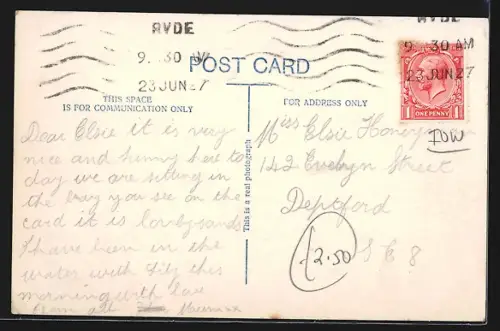 RYDE
9. 30 AM
23 JUN 27
RYDE
9. 30 AM
23 JUN 27
POST CARD
ONE PENNY
THIS SPACE
IS FOR COMMUNICATION ONLY
FOR ADDRESS ONLY
This is a real photograph
Dear Elsie it is very
nice and sunny here to
day we are sitting in
the you see on the
card it is lovely sands
I have been in the
water with this
morning with love
from all
Miss Elsie
142 Evelyn Street
Deptford
S E 8
IOW
2.50